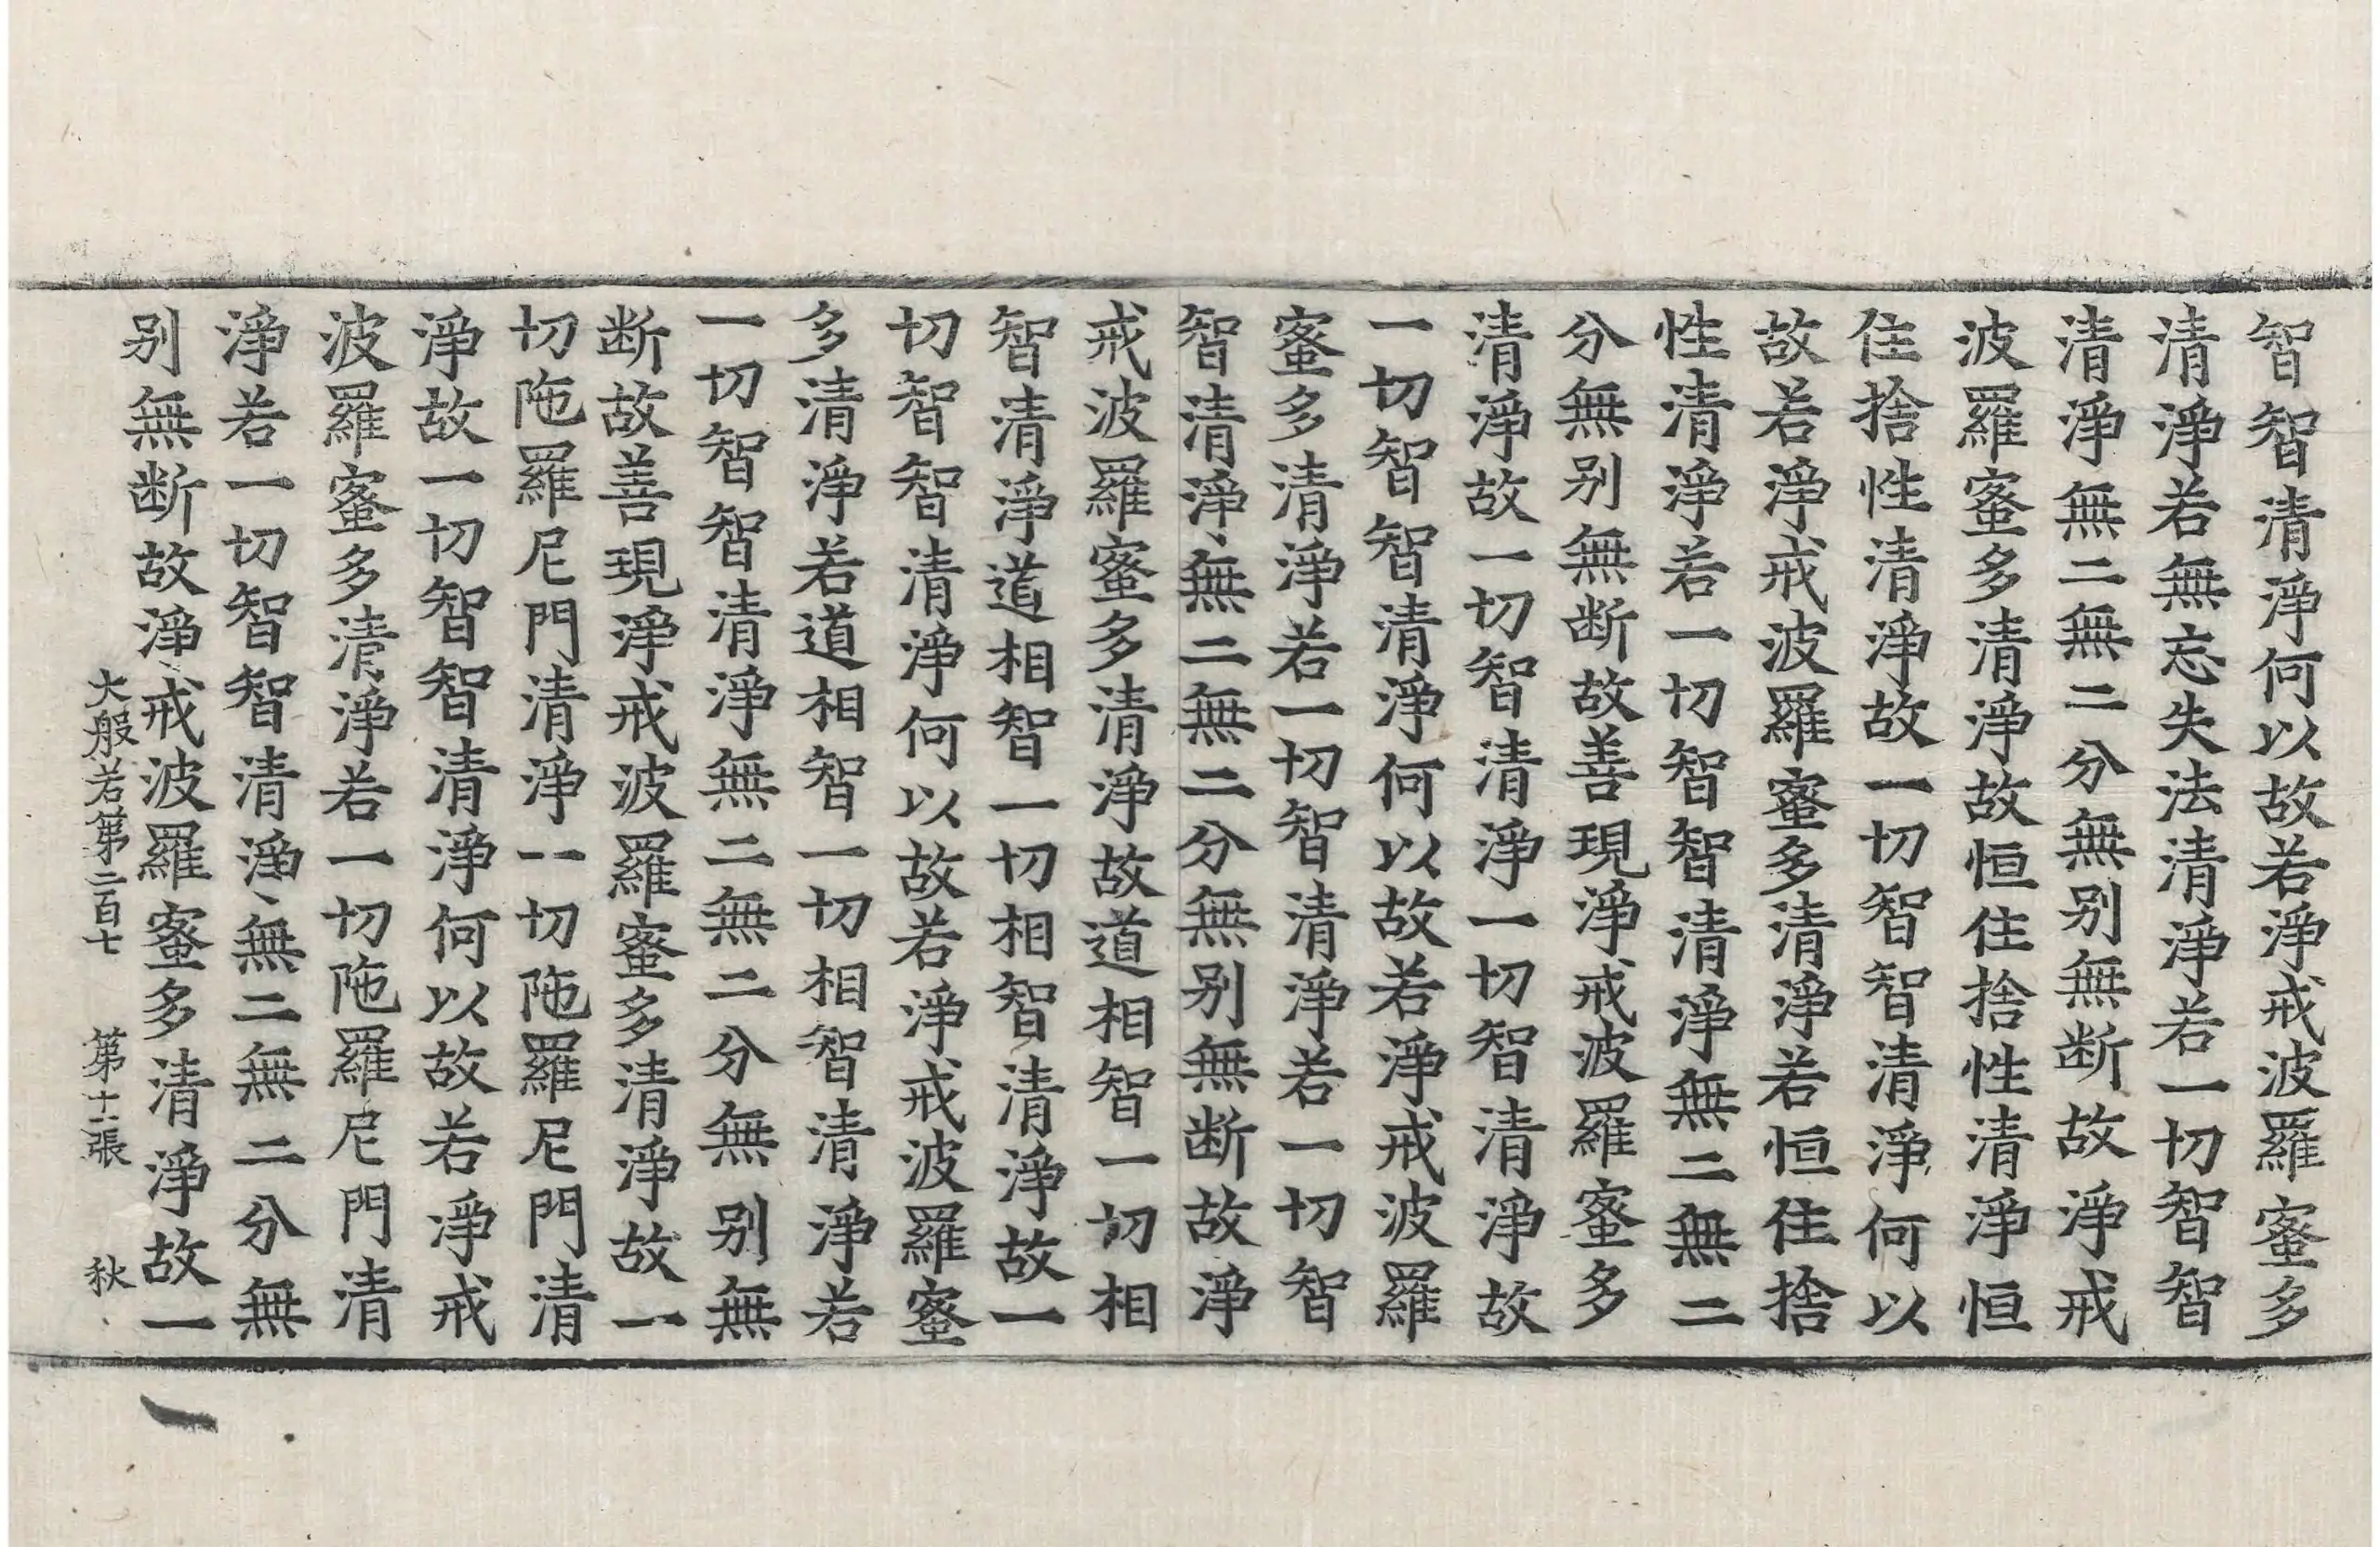 智智清淨何以故若淨戒波羅蜜多
清淨若無忘失法清淨若一切智智
清淨無二無二分無別無断故淨戒
波羅蜜多清淨故恒住捨性清淨恒
住捨性清淨故一切智智清淨何以
故若淨戒波羅蜜多清淨若恒住捨
性清淨若一切智智清淨無二無二
分無別無断故善現淨戒波羅蜜多
清淨故一切智清淨一切智清淨故
一切智智清淨何以故若淨戒波羅
蜜多清淨若一切智清淨若一切智
智清淨無二無二分無別無断故淨
戒波羅蜜多清淨故道相智一切相
智清淨道相智一切相智清淨故一
切智智清淨何以故若淨戒波羅蜜
多清淨若道相智一切相智清淨若
一切智智清淨無二無二分無別無
断故善現淨戒波羅蜜多清淨故一
切陁羅尼門清淨一切陁羅尼門清
淨故一切智智清淨何以故若淨戒
波羅蜜多清淨若一切陁羅尼門清
淨若一切智智清淨無二無二分無
別無断故淨戒波羅蜜多清淨故一
大般若第二百七 第十二張 秋